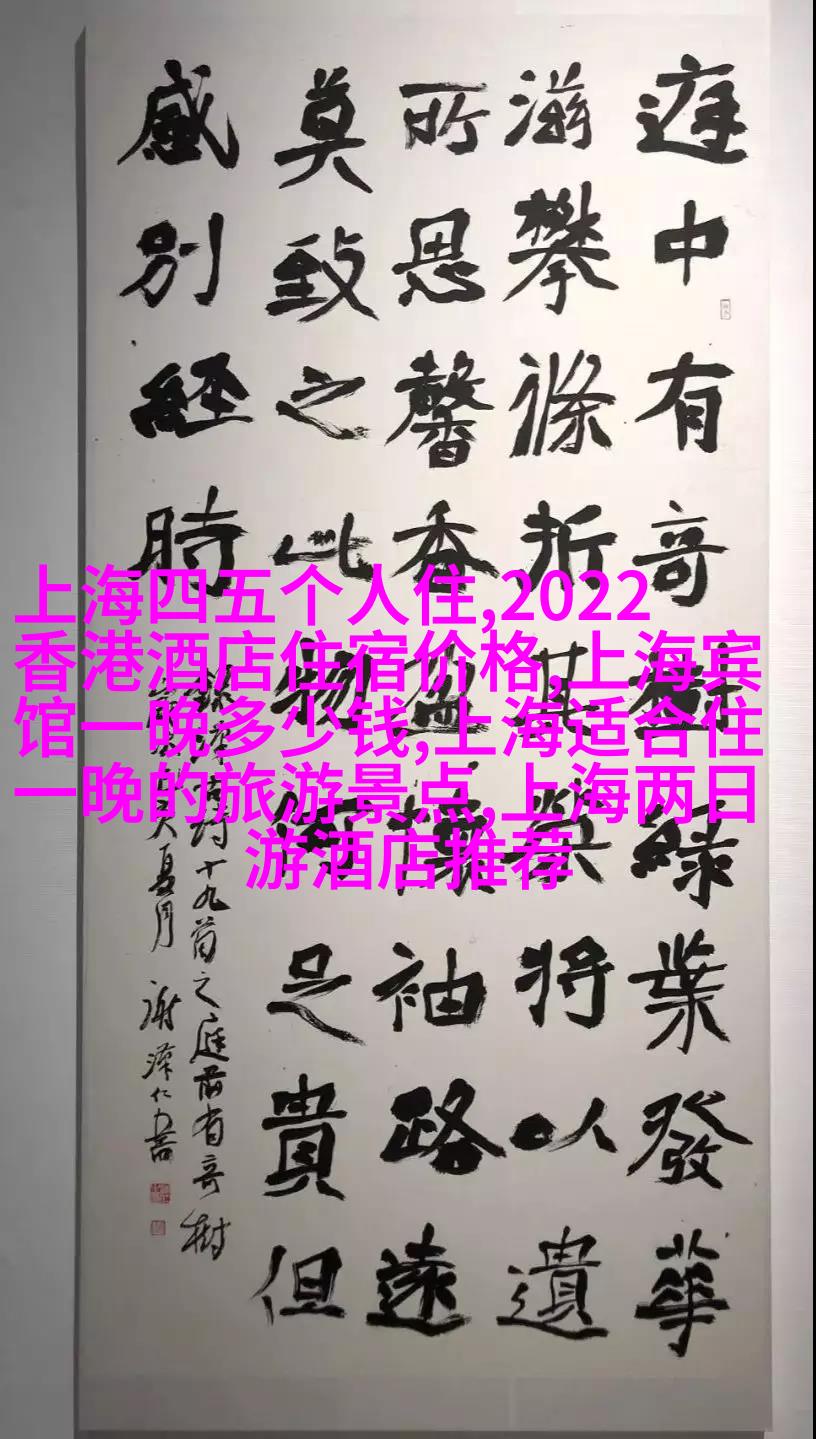 庭中有奇樹緑葉發華
滋攀條折其榮將以遺
所思馨香盈懷袖路遠
莫致之此物何足貴但
感別經時
詩十九首之庭前有奇樹
夏月 謝澤仁書
上海四五个人住,2022
香港酒店住宿价格,上海宾
馆一晚多少钱,上海适合住
一晚的旅游景点,上海两日
游酒店推荐